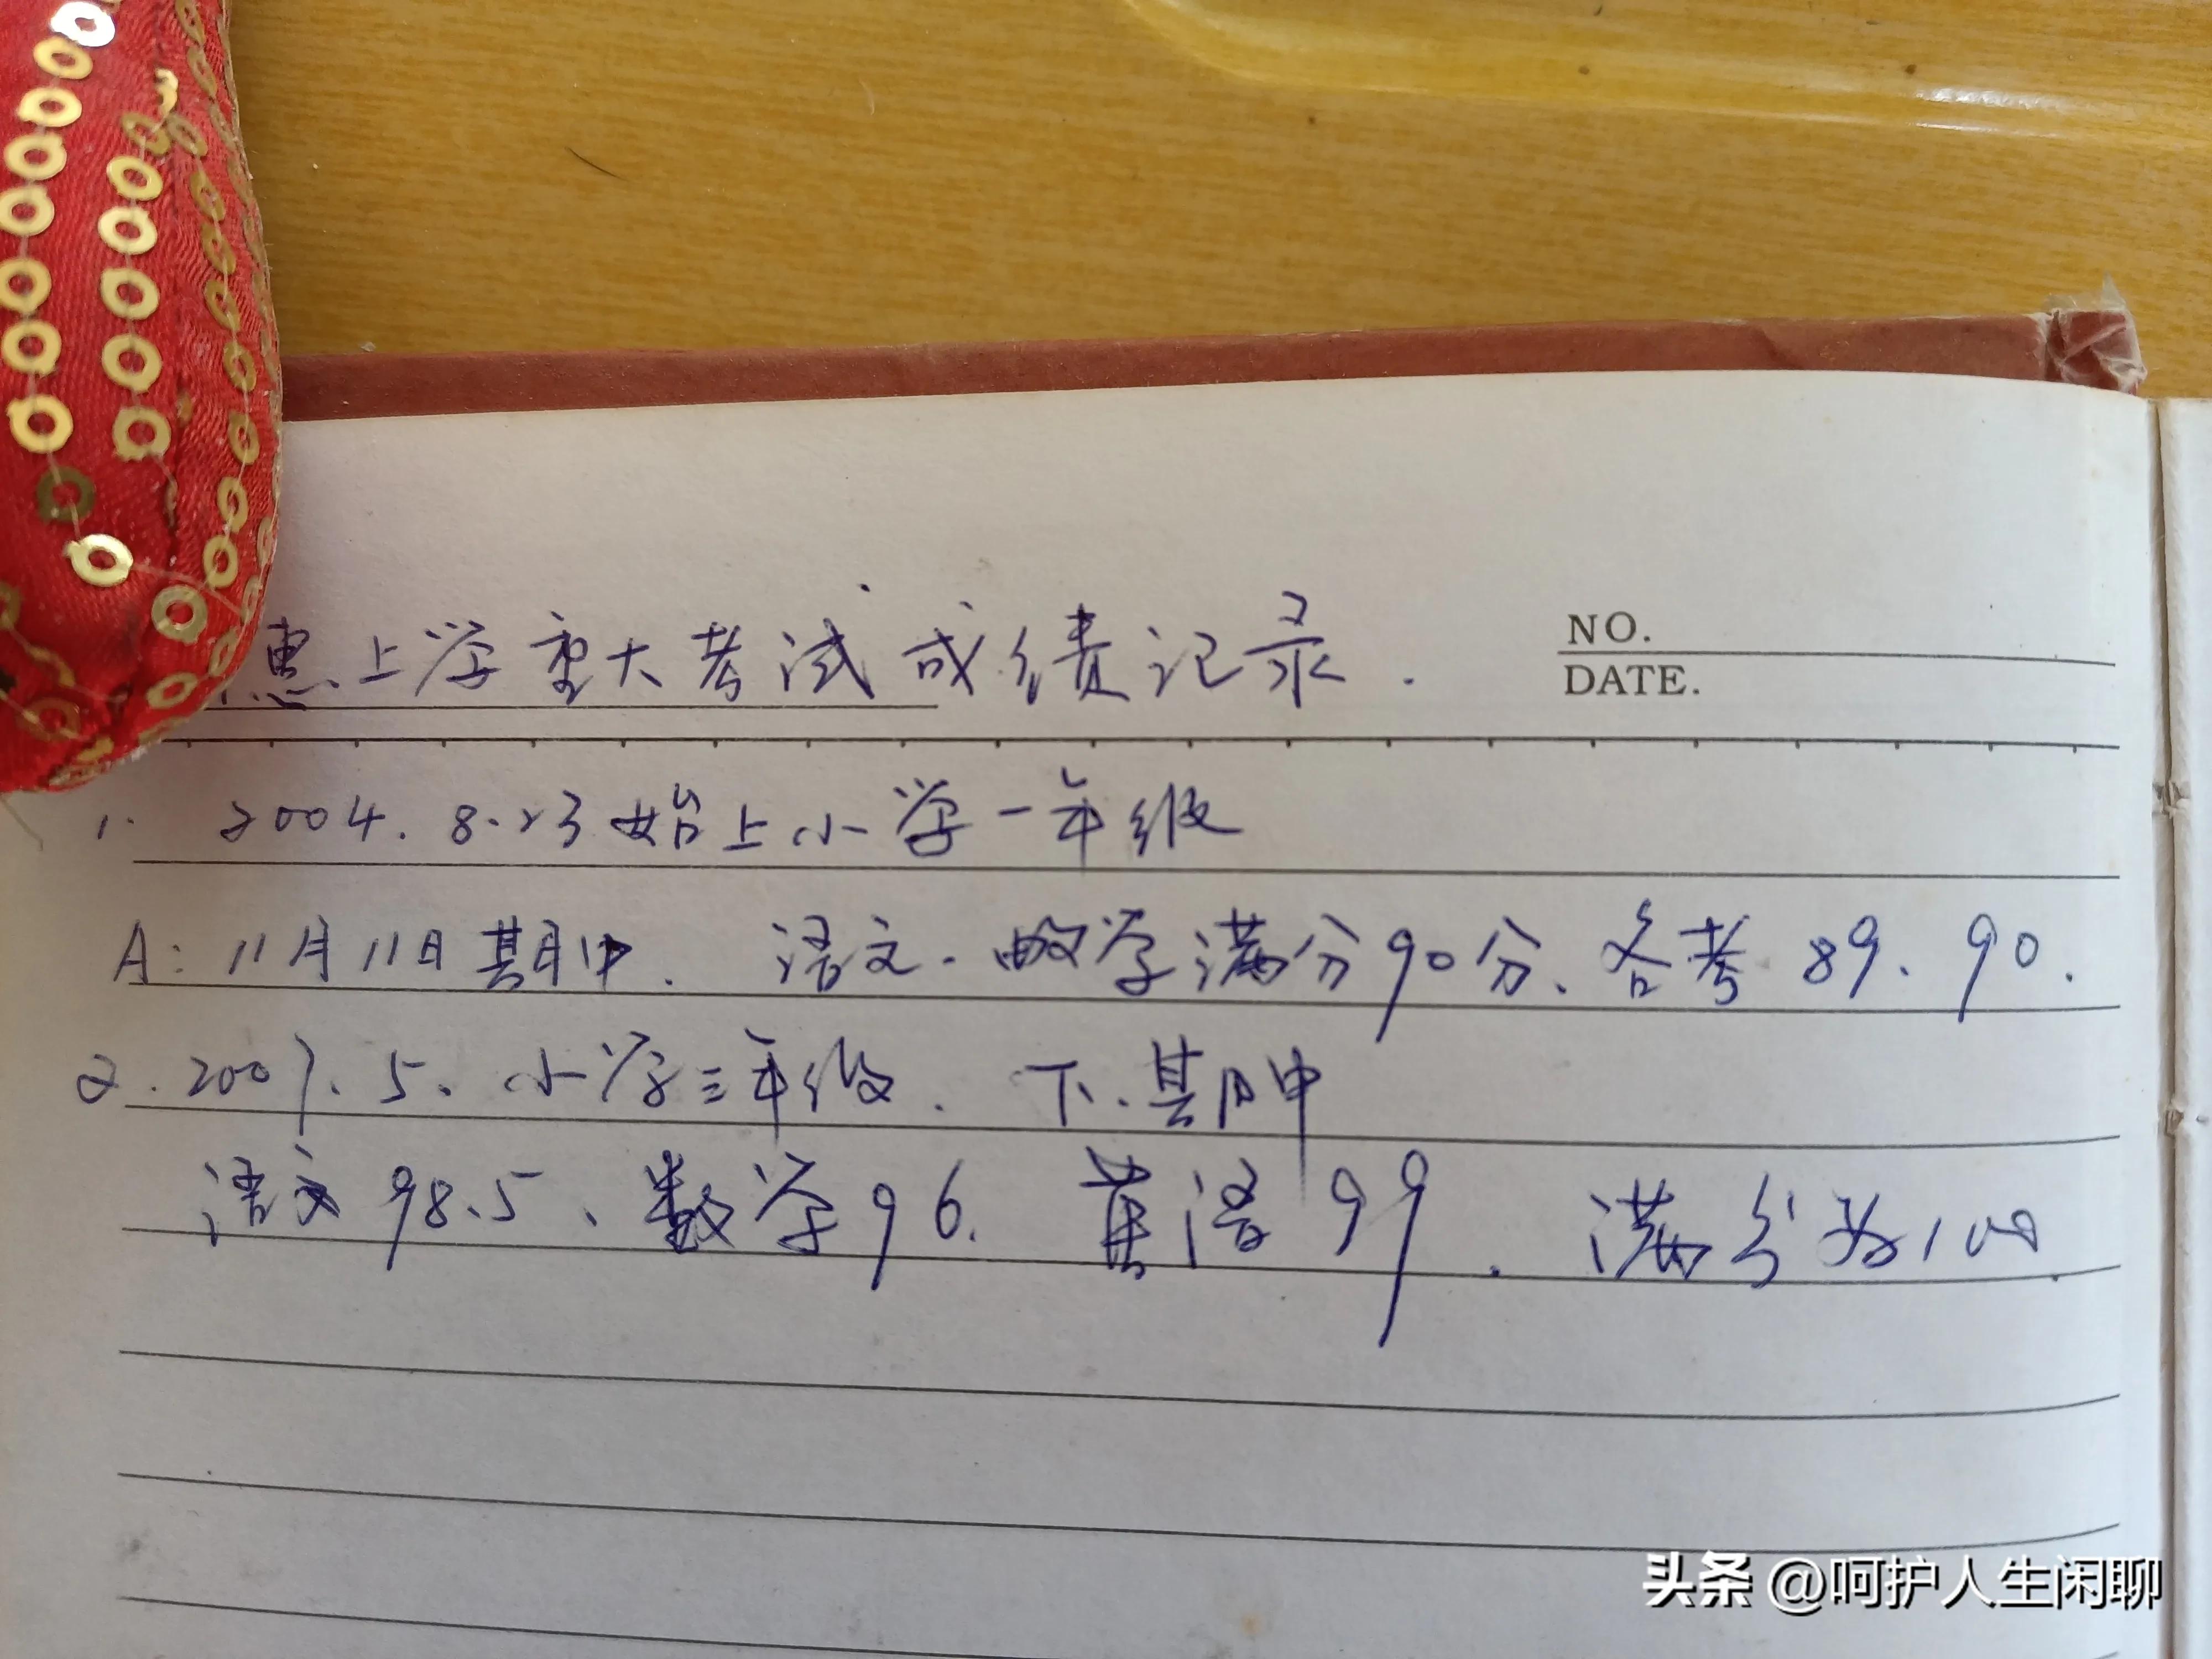 惠上学重大考试成绩记录.
NO.
DATE.
1. 2004.8.23始上小学一年级
A: 11月11日期中. 语文.数学满分90分、各考 89、90.
2.2007.5.小学三年级. 下.期中
语文98.5、数学96. 英语99. 满分为100
头条 @呵护人生闲聊